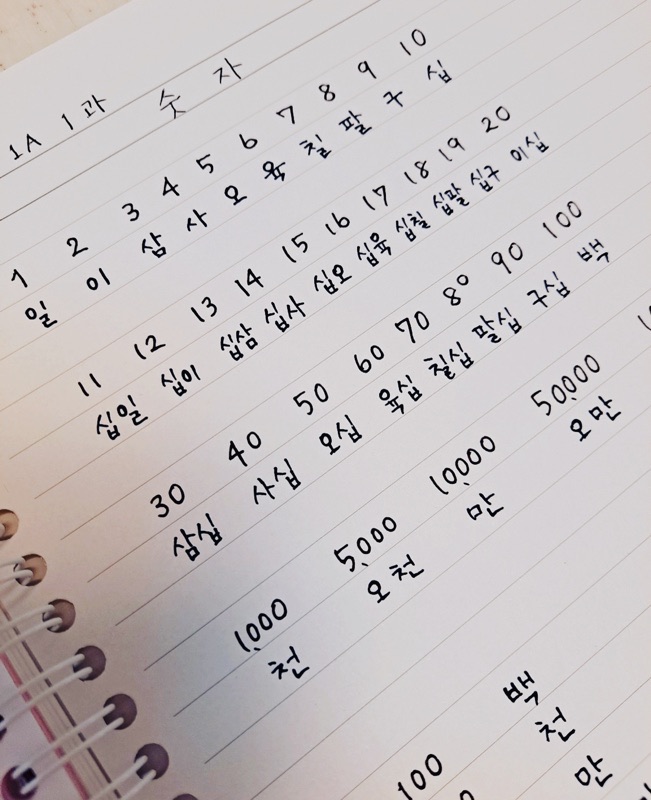 1A 1과 숫자
1 2 3 4 5 6 7 8 9 10
일 이 삼 사 오 육 칠 팔 구 십
11 12 13 14 15 16 17 18 19 20
십일 십이 십삼 십사 십오 십육 십칠 십팔 십구 이십
30 40 50 60 70 80 90 100
삼십 사십 오십 육십 칠십 팔십 구십 백
1,000 5,000 10,000 50,000
천 오천 만 오만
100 백
천
만